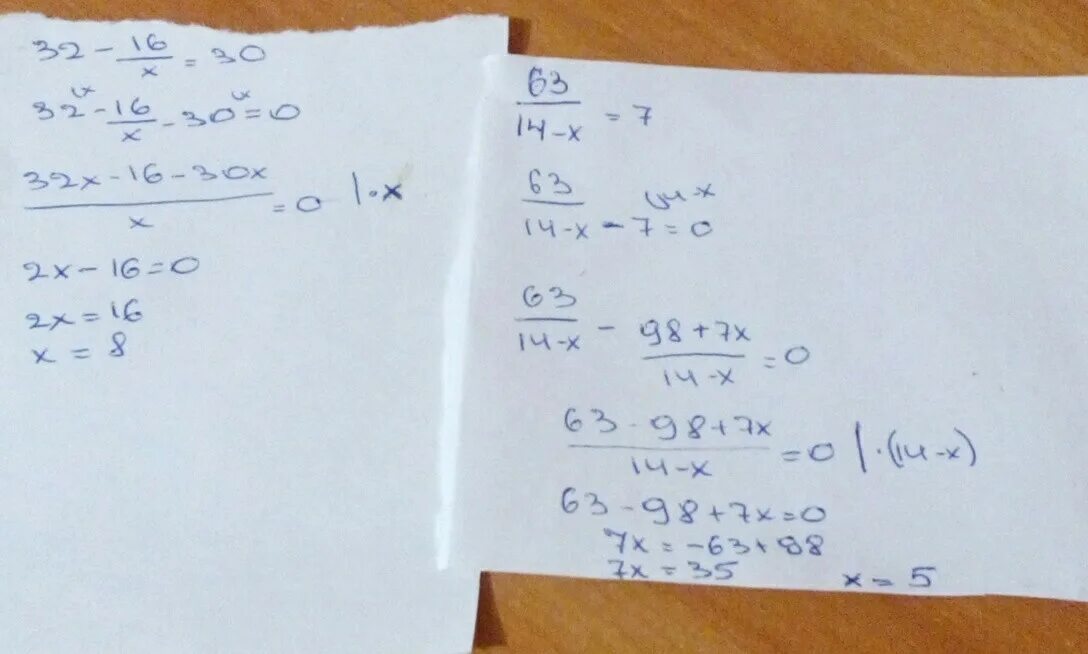 32 - 16/x = 30
32 - 16/x - 30 = 0
(32x - 16 - 30x)/x = 0 | · x
2x - 16 = 0
2x = 16
x = 8
63/(14 - x) = 7
63/(14 - x) - 7 = 0
14-x
63/(14 - x) - (98 + 7x)/(14 - x) = 0
(63 - 98 + 7x)/(14 - x) = 0 | · (14 - x)
63 - 98 + 7x = 0
7x = -63 + 98
7x = 35 x = 5